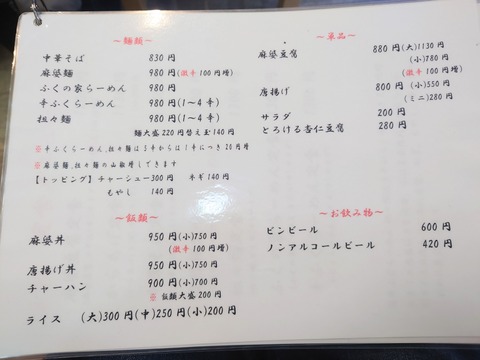 ～麺類～
中華そば 830円
麻婆麺 980円(激辛100円増)
ふくの家らーめん 980円
辛ふくらーめん 980円(1～4辛)
担々麺 980円(1～4辛)
麺大盛220円替え玉140円
※辛ふくらーめん、担々麺は5辛からは1辛につき20円増
※麻婆麺、担々麺の山椒増しできます
【トッピング】チャーシュー300円 ネギ140円
もやし 140円
～飯類～
麻婆丼 950円(小)750円
(激辛100円増)
唐揚げ丼 950円(小)750円
チャーハン 900円(小)700円
※飯類大盛200円
ライス (大)300円(中)250円(小)200円
～単品～
麻婆豆腐 880円(大)1130円
(小)780円
(激辛100円増)
唐揚げ 800円(小)550円
(ミニ)280円
サラダ 200円
とろける杏仁豆腐 280円
～お飲み物～
ビンビール 600円
ノンアルコールビール 420円